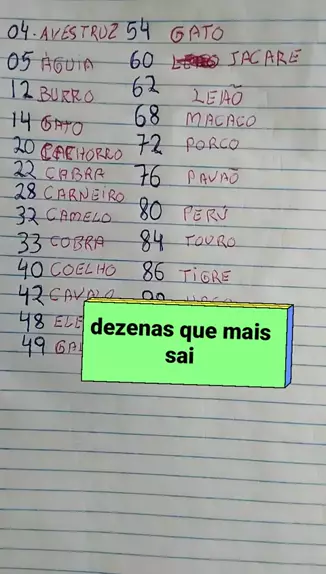 04 - AVESTRUZ 54 GATO
05 ÁGUIA 60 JACARE
12 BURRO 62 LEÃO
14 GATO 68 MACACO
20 CACHORRO 72 PORCO
22 CABRA 76 PAVÃO
28 CARNEIRO 80 PERÚ
32 CAMELO 84 TOURO
33 COBRA 86 TIGRE
40 COELHO
42 CAVALO
48 ELE
49 GAL
dezenas que mais
sai